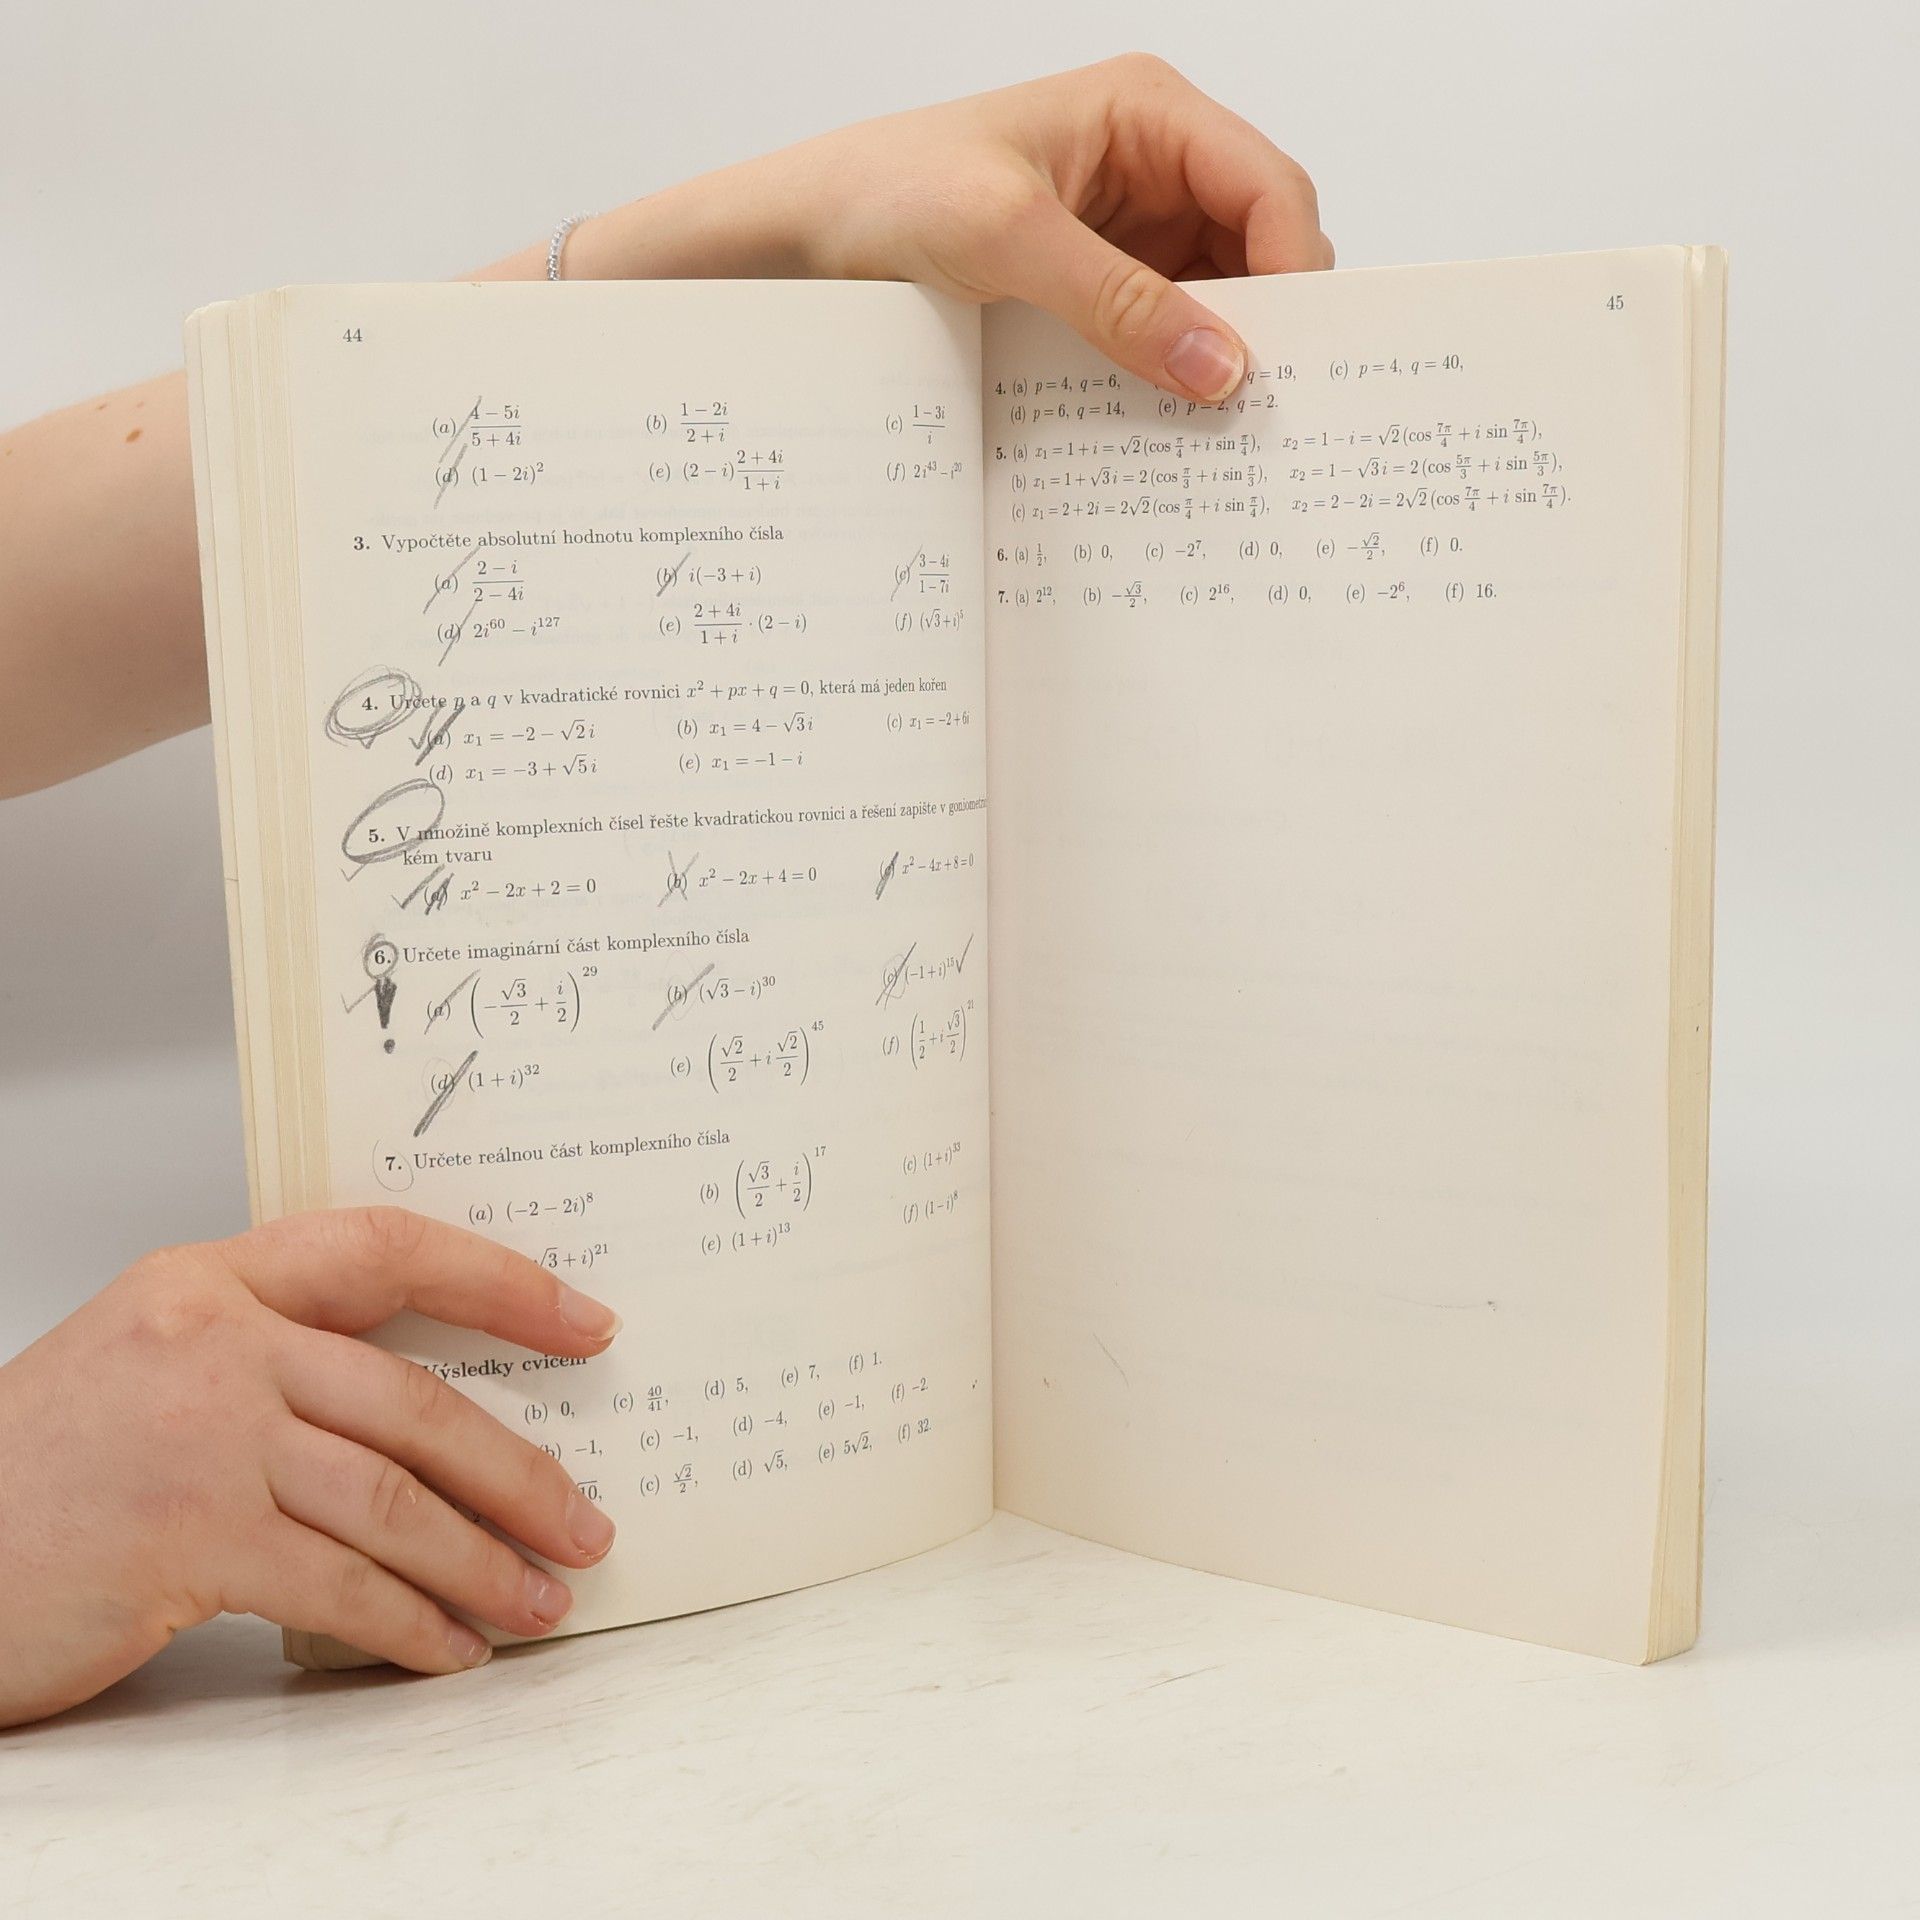 44
(a) \frac{4 - 5i}{5 + 4i} (b) \frac{1 - 2i}{2 + i} (c) \frac{1 - 3i}{i}
(d) (1 − 2i)² (e) (2 − i)\frac{2 + 4i}{1 + i} (f) 2i⁴³ − i²⁰
3. Vypočtěte absolutní hodnotu komplexního čísla
(a) \frac{2 - i}{2 - 4i} (b) i(−3 + i) (c) \frac{3 - 4i}{1 - 7i}
(d) 2i⁶⁰ − i¹²⁷ (e) \frac{2 + 4i}{1 + i} · (2 − i) (f) (√3 + i)⁵
4. Určete p a q v kvadratické rovnici x² + px + q = 0, která má jeden kořen
(a) x₁ = −2 − √2 i (b) x₁ = 4 − √3 i (c) x₁ = −2 + 6i
(d) x₁ = −3 + √5 i (e) x₁ = −1 − i
5. V množině komplexních čísel řešte kvadratickou rovnici a řešení zapište v goniometric
kém tvaru
(a) x² − 2x + 2 = 0 (b) x² − 2x + 4 = 0 (c) x² − 4x + 8 = 0
6. Určete imaginární část komplexního čísla
(a) (−\frac{√3}{2} + \frac{i}{2})²⁹ (b) (√3 − i)³⁰ (c) (−1 + i)¹⁵
(d) (1 + i)³² (e) (\frac{√2}{2} + i\frac{√2}{2})⁴⁵ (f) (\frac{1}{2} + i\frac{√3}{2})²¹
7. Určete reálnou část komplexního čísla
(a) (−2 − 2i)⁸ (b) (\frac{√3}{2} + \frac{i}{2})¹⁷ (c) (1 + i)³³
√3 + i)²¹ (e) (1 + i)¹³ (f) (1 − i)⁸
Výsledky cvičení
(b) 0, (c) \frac{40}{41}, (d) 5, (e) 7, (f) 1.
(b) −1, (c) −1, (d) −4, (e) −1, (f) −2.
√10, (c) \frac{√2}{2}, (d) √5, (e) 5√2, (f) 32.
45
4. (a) p = 4, q = 6, q = 19, (c) p = 4, q = 40,
(d) p = 6, q = 14, (e) p = 2, q = 2.
5. (a) x₁ = 1 + i = √2 (cos \frac{π}{4} + i sin \frac{π}{4}), x₂ = 1 − i = √2 (cos \frac{7π}{4} + i sin \frac{7π}{4}),
(b) x₁ = 1 + √3 i = 2 (cos \frac{π}{3} + i sin \frac{π}{3}), x₂ = 1 − √3 i = 2 (cos \frac{5π}{3} + i sin \frac{5π}{3}),
(c) x₁ = 2 + 2i = 2√2 (cos \frac{π}{4} + i sin \frac{π}{4}), x₂ = 2 − 2i = 2√2 (cos \frac{7π}{4} + i sin \frac{7π}{4}).
6. (a) \frac{1}{2}, (b) 0, (c) −2⁷, (d) 0, (e) −\frac{√2}{2}, (f) 0.
7. (a) 2¹², (b) −\frac{√3}{2}, (c) 2¹⁶, (d) 0, (e) −2⁶, (f) 16.